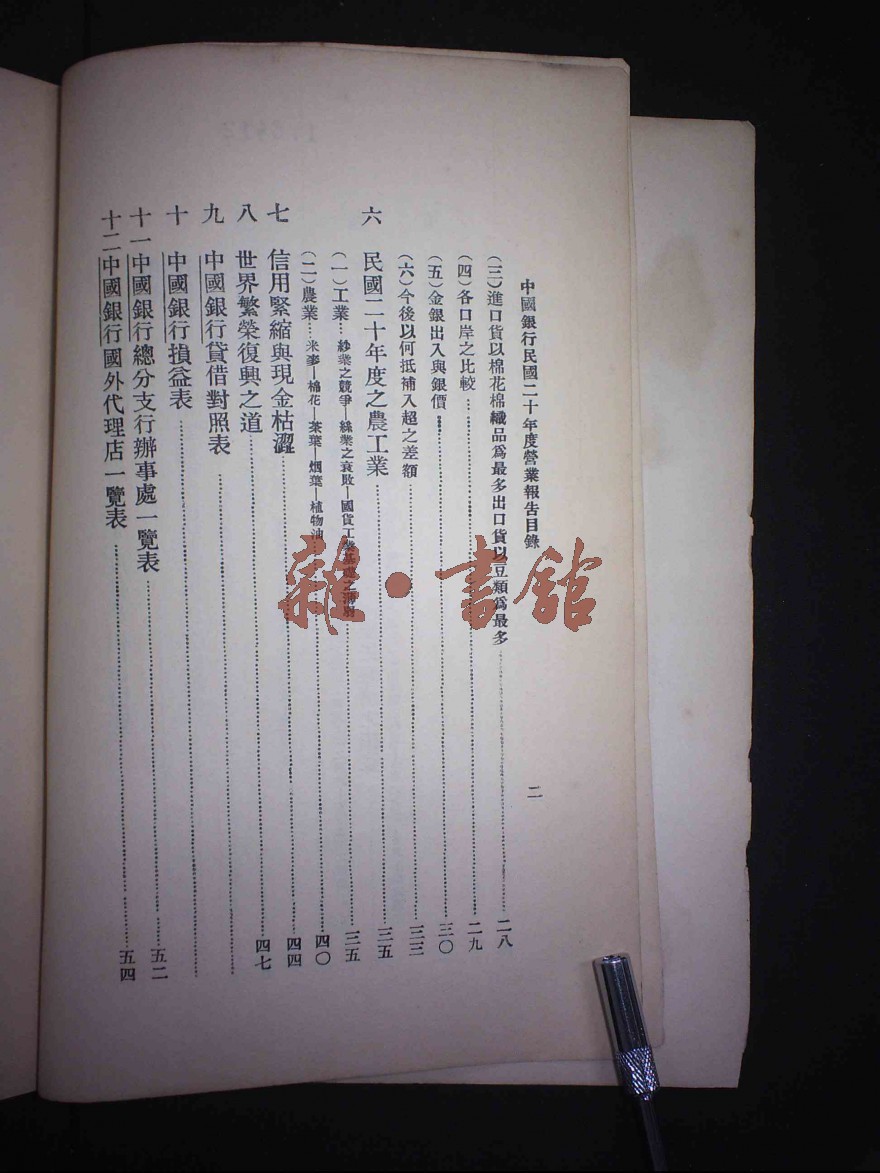 中國銀行民國二十年度營業報告目錄
二
(三)進口貨以棉花棉織品爲最多出口貨以豆類爲最多 二八
(四)各口岸之比較 二九
(五)金銀出入與銀價 三〇
(六)今後以何抵補入超之差額 三三
六 民國二十年度之農工業 三五
(一)工業 紗業之競爭—絲業之衰敗—國貨工業 三五
(二)農業 米麥—棉花—茶葉—烟葉—植物油 四〇
七 信用緊縮與現金枯澀 四四
八 世界繁榮復興之道 四七
九 中國銀行貸借對照表
十 中國銀行損益表
十一 中國銀行總分支行辦事處一覽表 五二
十二 中國銀行國外代理店一覽表 五四
雜·書館